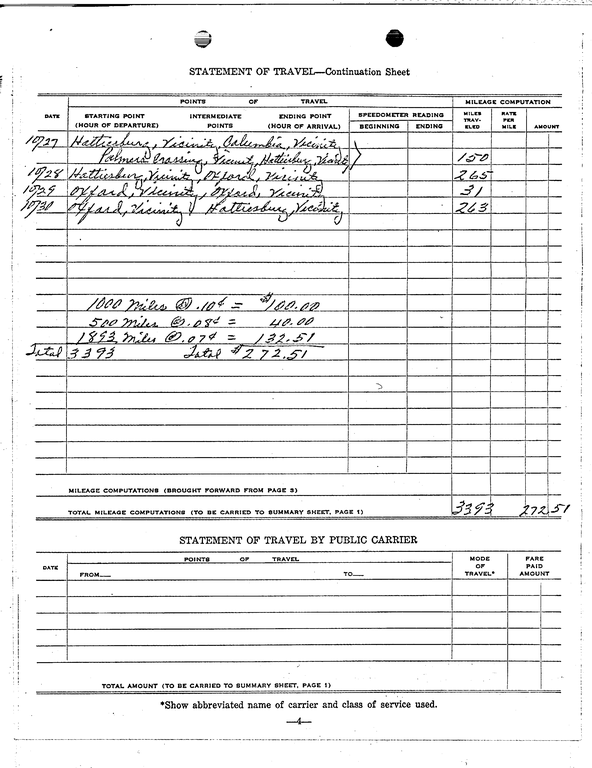 STATEMENT OF TRAVEL—Continuation Sheet
POINTS OF TRAVEL MILEAGE COMPUTATION
DATE STARTING POINT (HOUR OF DEPARTURE) INTERMEDIATE POINTS ENDING POINT (HOUR OF ARRIVAL) SPEEDOMETER READING BEGINNING ENDING MILES TRAV- ELED RATE PER MILE AMOUNT
10/27 Hattiesburg, Vicinity, Columbia, Vicinity
Palmers Crossing, Vicinity, Hattiesburg, Vicinity 150
10/28 Hattiesburg, Vicinity, Oxford, Vicinity 265
10/29 Oxford, Vicinity, Oxford, Vicinity 31
10/30 Oxford, Vicinity Hattiesburg, Vicinity 263
1000 Miles @ .10¢ = $100.00
500 Miles @ .08¢ = 40.00
1893 Miles @ .07¢ = 132.51
Total 3393 Total $272.51
MILEAGE COMPUTATIONS (BROUGHT FORWARD FROM PAGE 3)
TOTAL MILEAGE COMPUTATIONS (TO BE CARRIED TO SUMMARY SHEET, PAGE 1) 3393 272 51
STATEMENT OF TRAVEL BY PUBLIC CARRIER
DATE POINTS OF TRAVEL MODE OF TRAVEL* FARE PAID AMOUNT
FROM— TO—
TOTAL AMOUNT (TO BE CARRIED TO SUMMARY SHEET, PAGE 1)
*Show abbreviated name of carrier and class of service used.
—4—